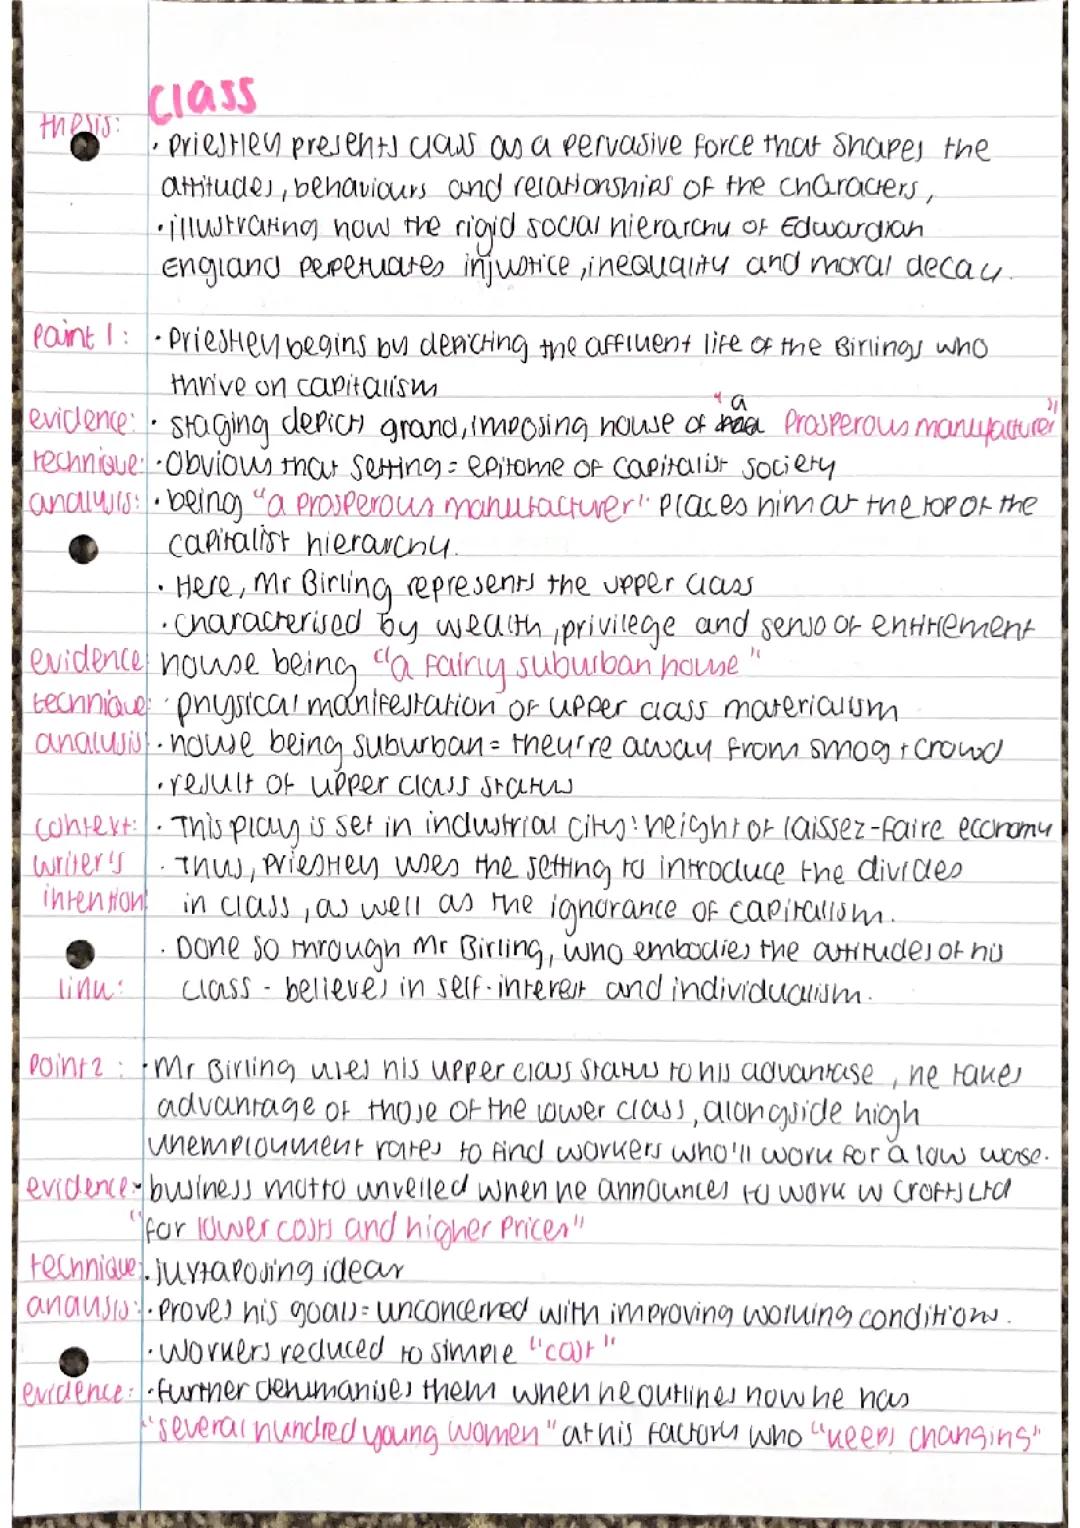 Class
thesis: · Priestley presents class as a pervasive force that shapes the
attitudes, behaviours and relationships of the characters,
· illustrating how the rigid social hierarchy of Edwardian
England perpetuates injustice, inequality and moral decay.
Point 1: · Priestley begins by depicting the affluent life of the Birlings who
thrive on capitalism
evidence: · staging depicts grand, imposing house of "a prosperous manufacturer"
technique: · Obvious that setting = epitome of capitalist society
analysis: · being "a prosperous manufacturer" places him at the top of the
capitalist hierarchy.
· Here, Mr Birling represents the upper class
· characterised by wealth, privilege and sense of entitlement
evidence house being "a fairly suburban house"
technique: · physical manifestation of upper class materialism
analysis · house being suburban = they're away from smog + crowd
· result of upper class status
context: · This play is set in industrial city: height of laissez-faire economy
writer's · Thus, Priestley uses the setting to introduce the divides
intention: in class, as well as the ignorance of capitalism.
· Done so through Mr Birling, who embodies the attitudes of his
link: class - believes in self-interest and individualism.
Point 2: · Mr Birling uses his upper class status to his advantage, he takes
advantage of those of the lower class, alongside high
unemployment rates to find workers who'll work for a low wage.
evidence: · business motto unveiled when he announces to work w Crofts Ltd
"for lower costs and higher prices"
technique: · juxtaposing ideas
analysis: · proves his goals = unconcerned with improving working conditions.
· workers reduced to simple "cost"
evidence: · further dehumanises them when he outlines how he has
"several hundred young women" at his factory who "keeps changing"